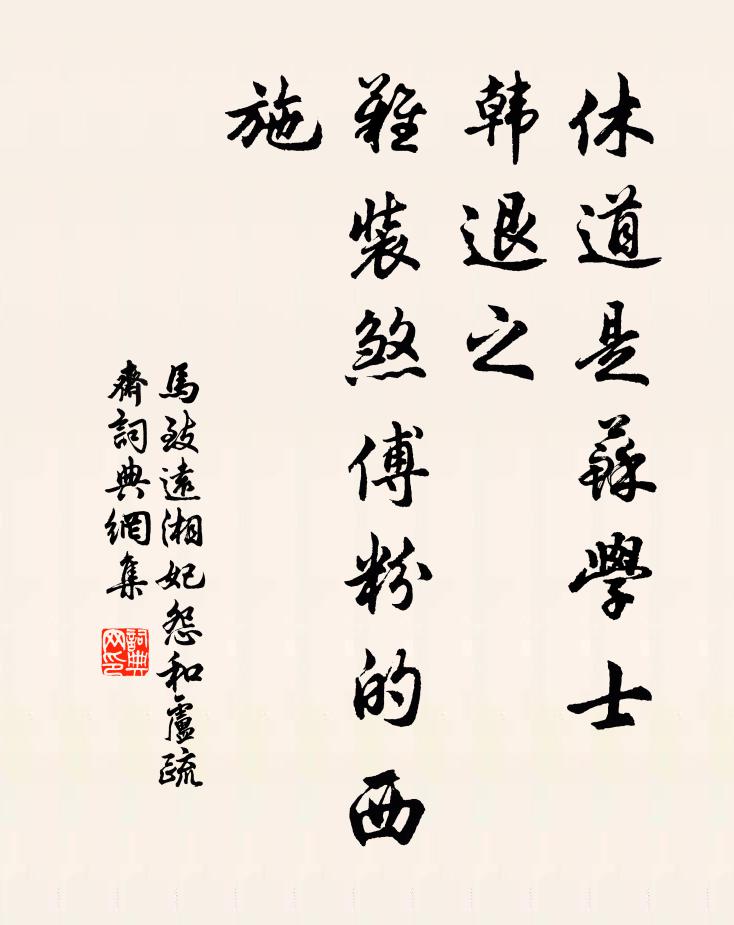 休道是蘇學士
韩退之
難裝煞傅粉的西
施
馬致遠湘妃怨和盧疏
齋詞典網集
詞典
网印